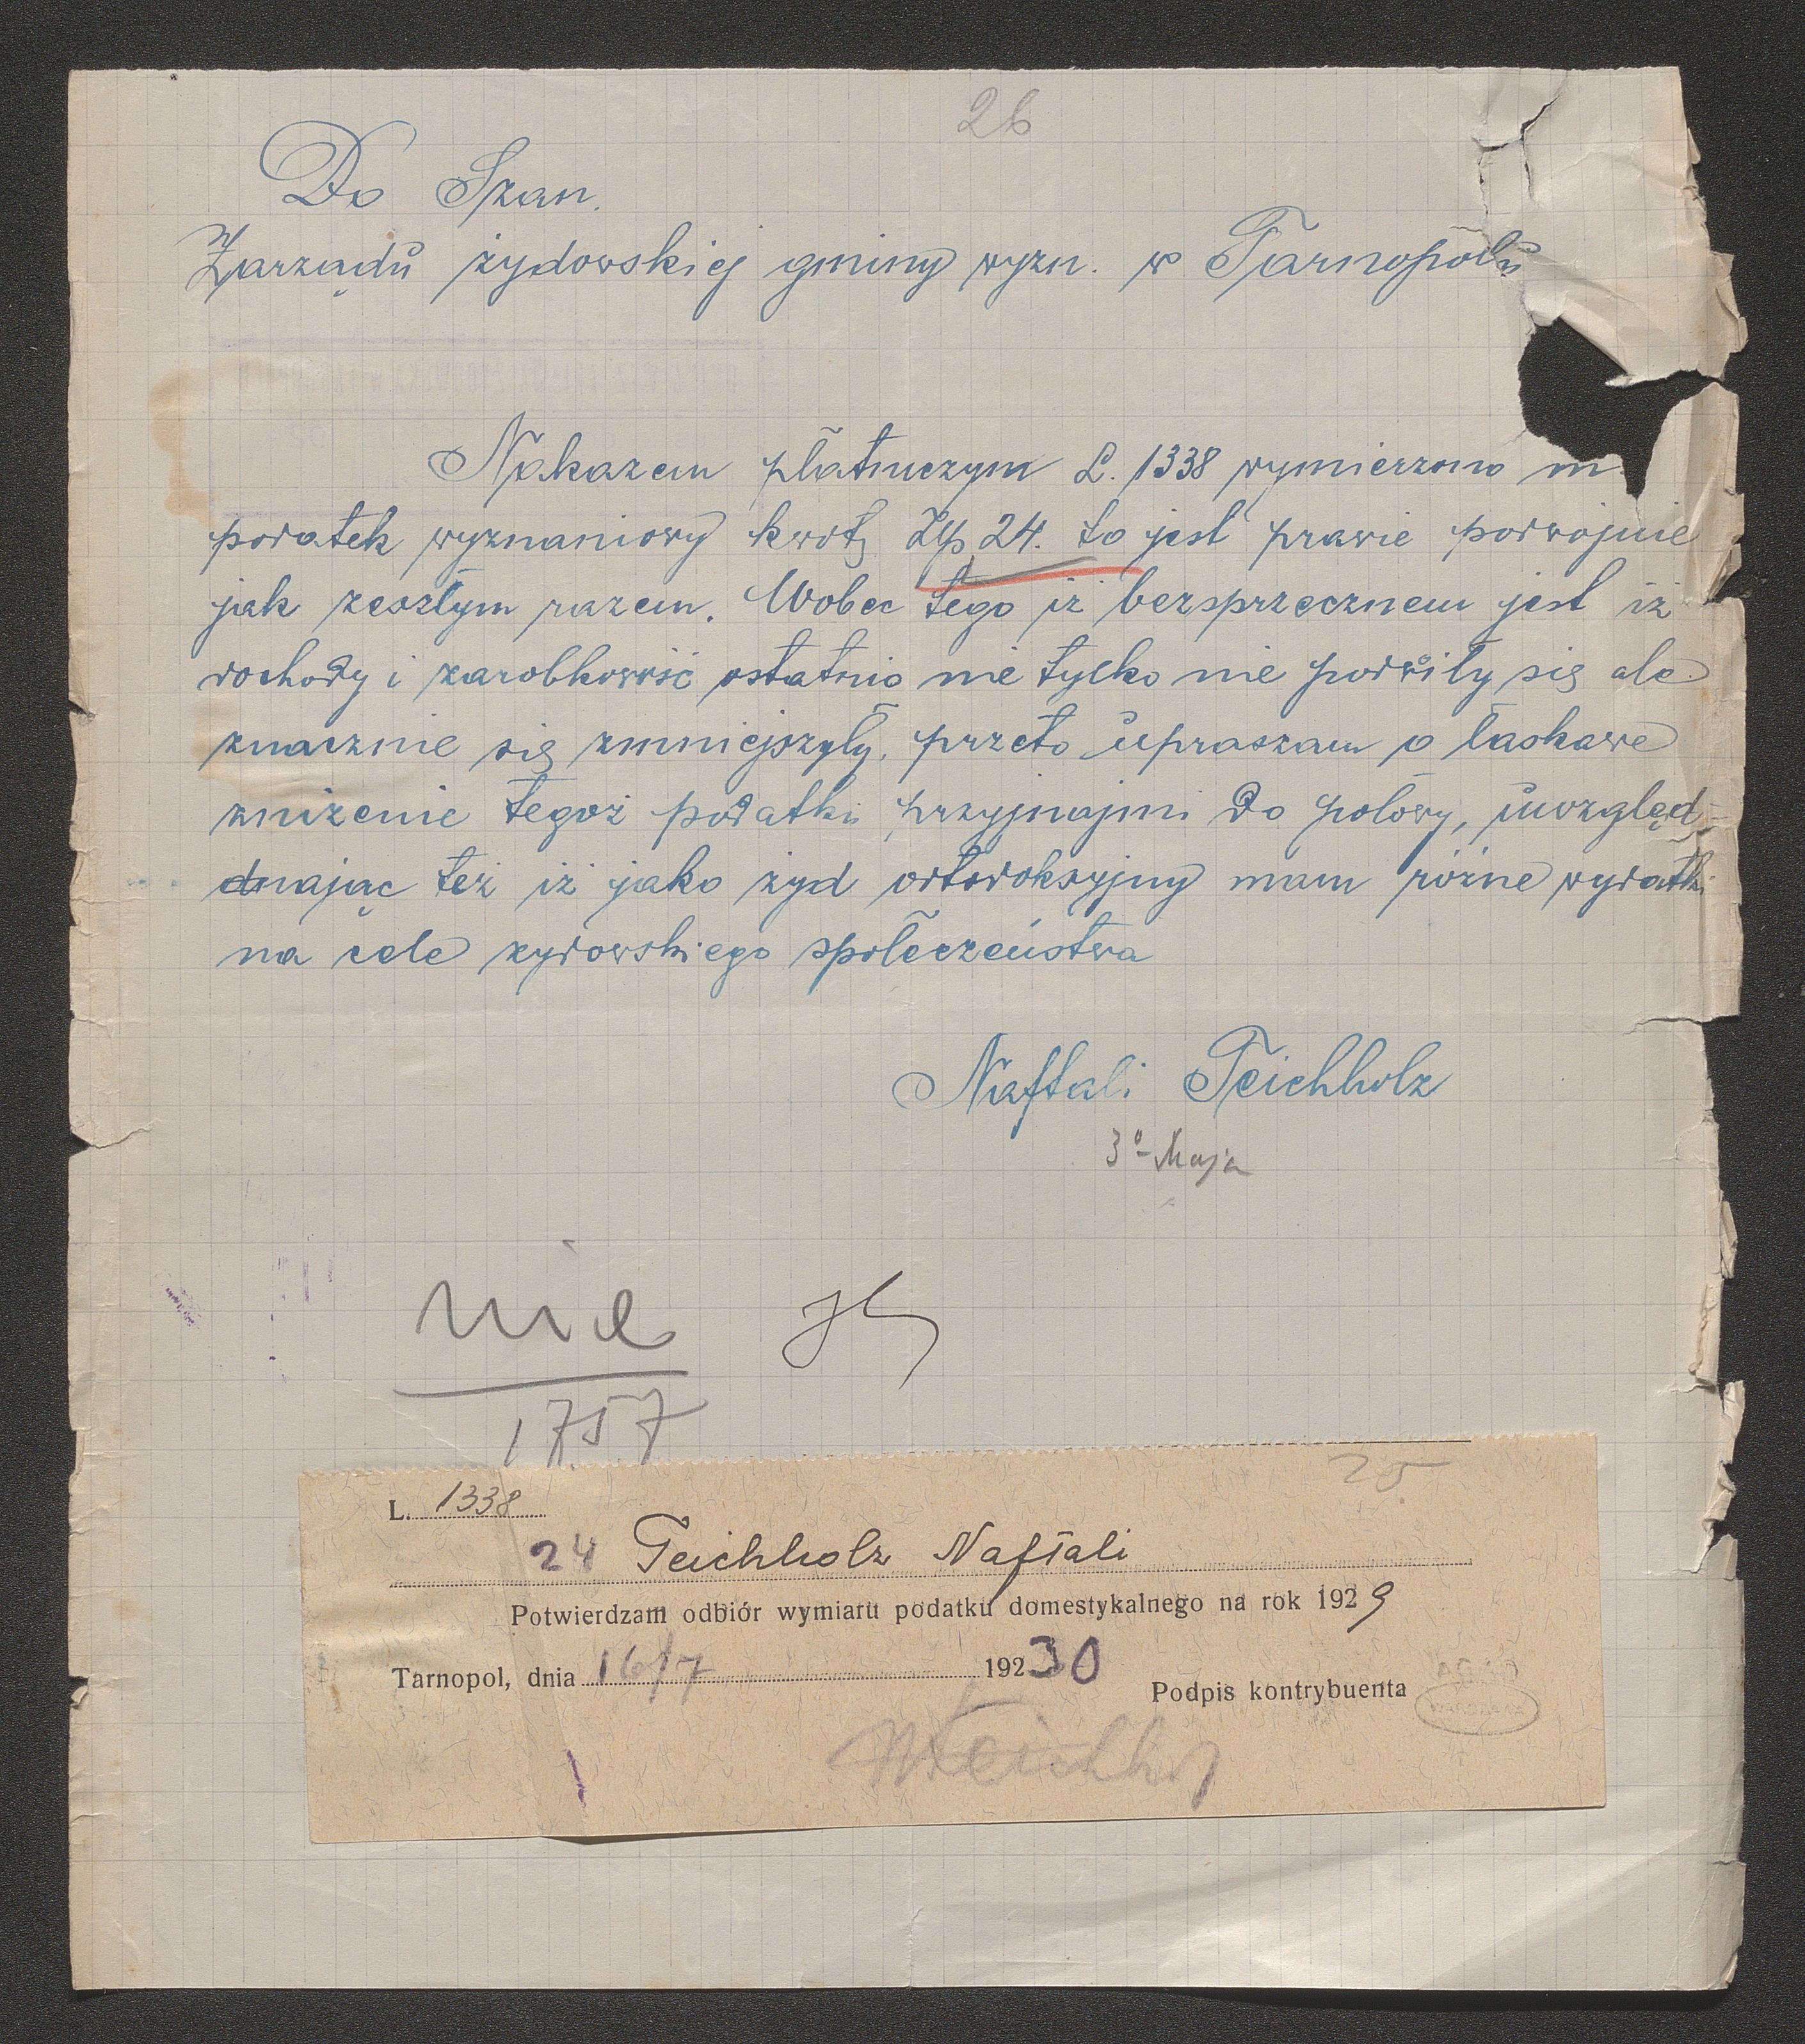 26
Do Szan.
Zarządu żydowskiej gminy wyzn. w Tarnopolu
Nakazem płatniczym L. 1338 wymierzono m
podatek wyznaniowy kwotę Złp 24. to jest prawie podwójnie
jak zeszłym razem. Wobec tego iż bezsprzecznem jest iż
dochody i zarobkowość ostatnio nie tylko nie podwiły się ale
znacznie się zmniejszyły, przeto upraszam o łaskawe
zniżenie tegoż podatku przyjnajmi do połowy, uwzględ-
dnając też iż jako żyd ortodoksyjny mam różne wydatki
na cele zydowskiego społeczeństwa
Naftali Teichholz
3º Maja
nie
1757
25
L. 1338
24 Teichholz Naftali
Potwierdzam odbiór wymiaru podatku domestykalnego na rok 1929
Tarnopol, dnia 16/7 19230
Podpis kontrybuenta